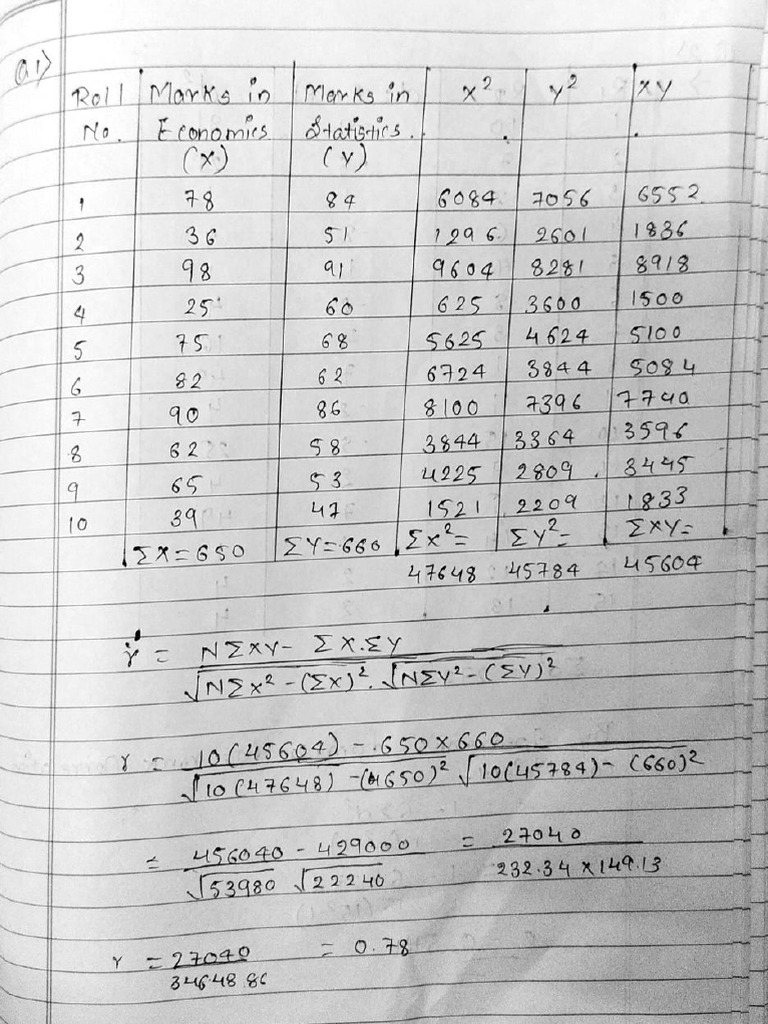 Q1)
Roll No. | Marks in Economics (X) | Marks in Statistics. (Y) | x² | y² | xy
1 | 78 | 84 | 6084 | 7056 | 6552
2 | 36 | 51 | 1296 | 2601 | 1836
3 | 98 | 91 | 9604 | 8281 | 8918
4 | 25 | 60 | 625 | 3600 | 1500
5 | 75 | 68 | 5625 | 4624 | 5100
6 | 82 | 62 | 6724 | 3844 | 5084
7 | 90 | 86 | 8100 | 7396 | 7740
8 | 62 | 58 | 3844 | 3364 | 3596
9 | 65 | 53 | 4225 | 2809 | 3445
10 | 39 | 47 | 1521 | 2209 | 1833
ΣX=650 | ΣY=660 | Σx²= 47648 | Σy²= 45784 | Σxy= 45604
r = NΣXY- ΣX.ΣY
√NΣx²-(Σx)². √NΣy²-(Σy)²
r = 10(45604) - 650×660
√10(47648) -(650)² √10(45784)- (660)²
= 456040 - 429000 = 27040
√53980 √22240 232.34 × 149.13
r = 27040 = 0.78
34648.86